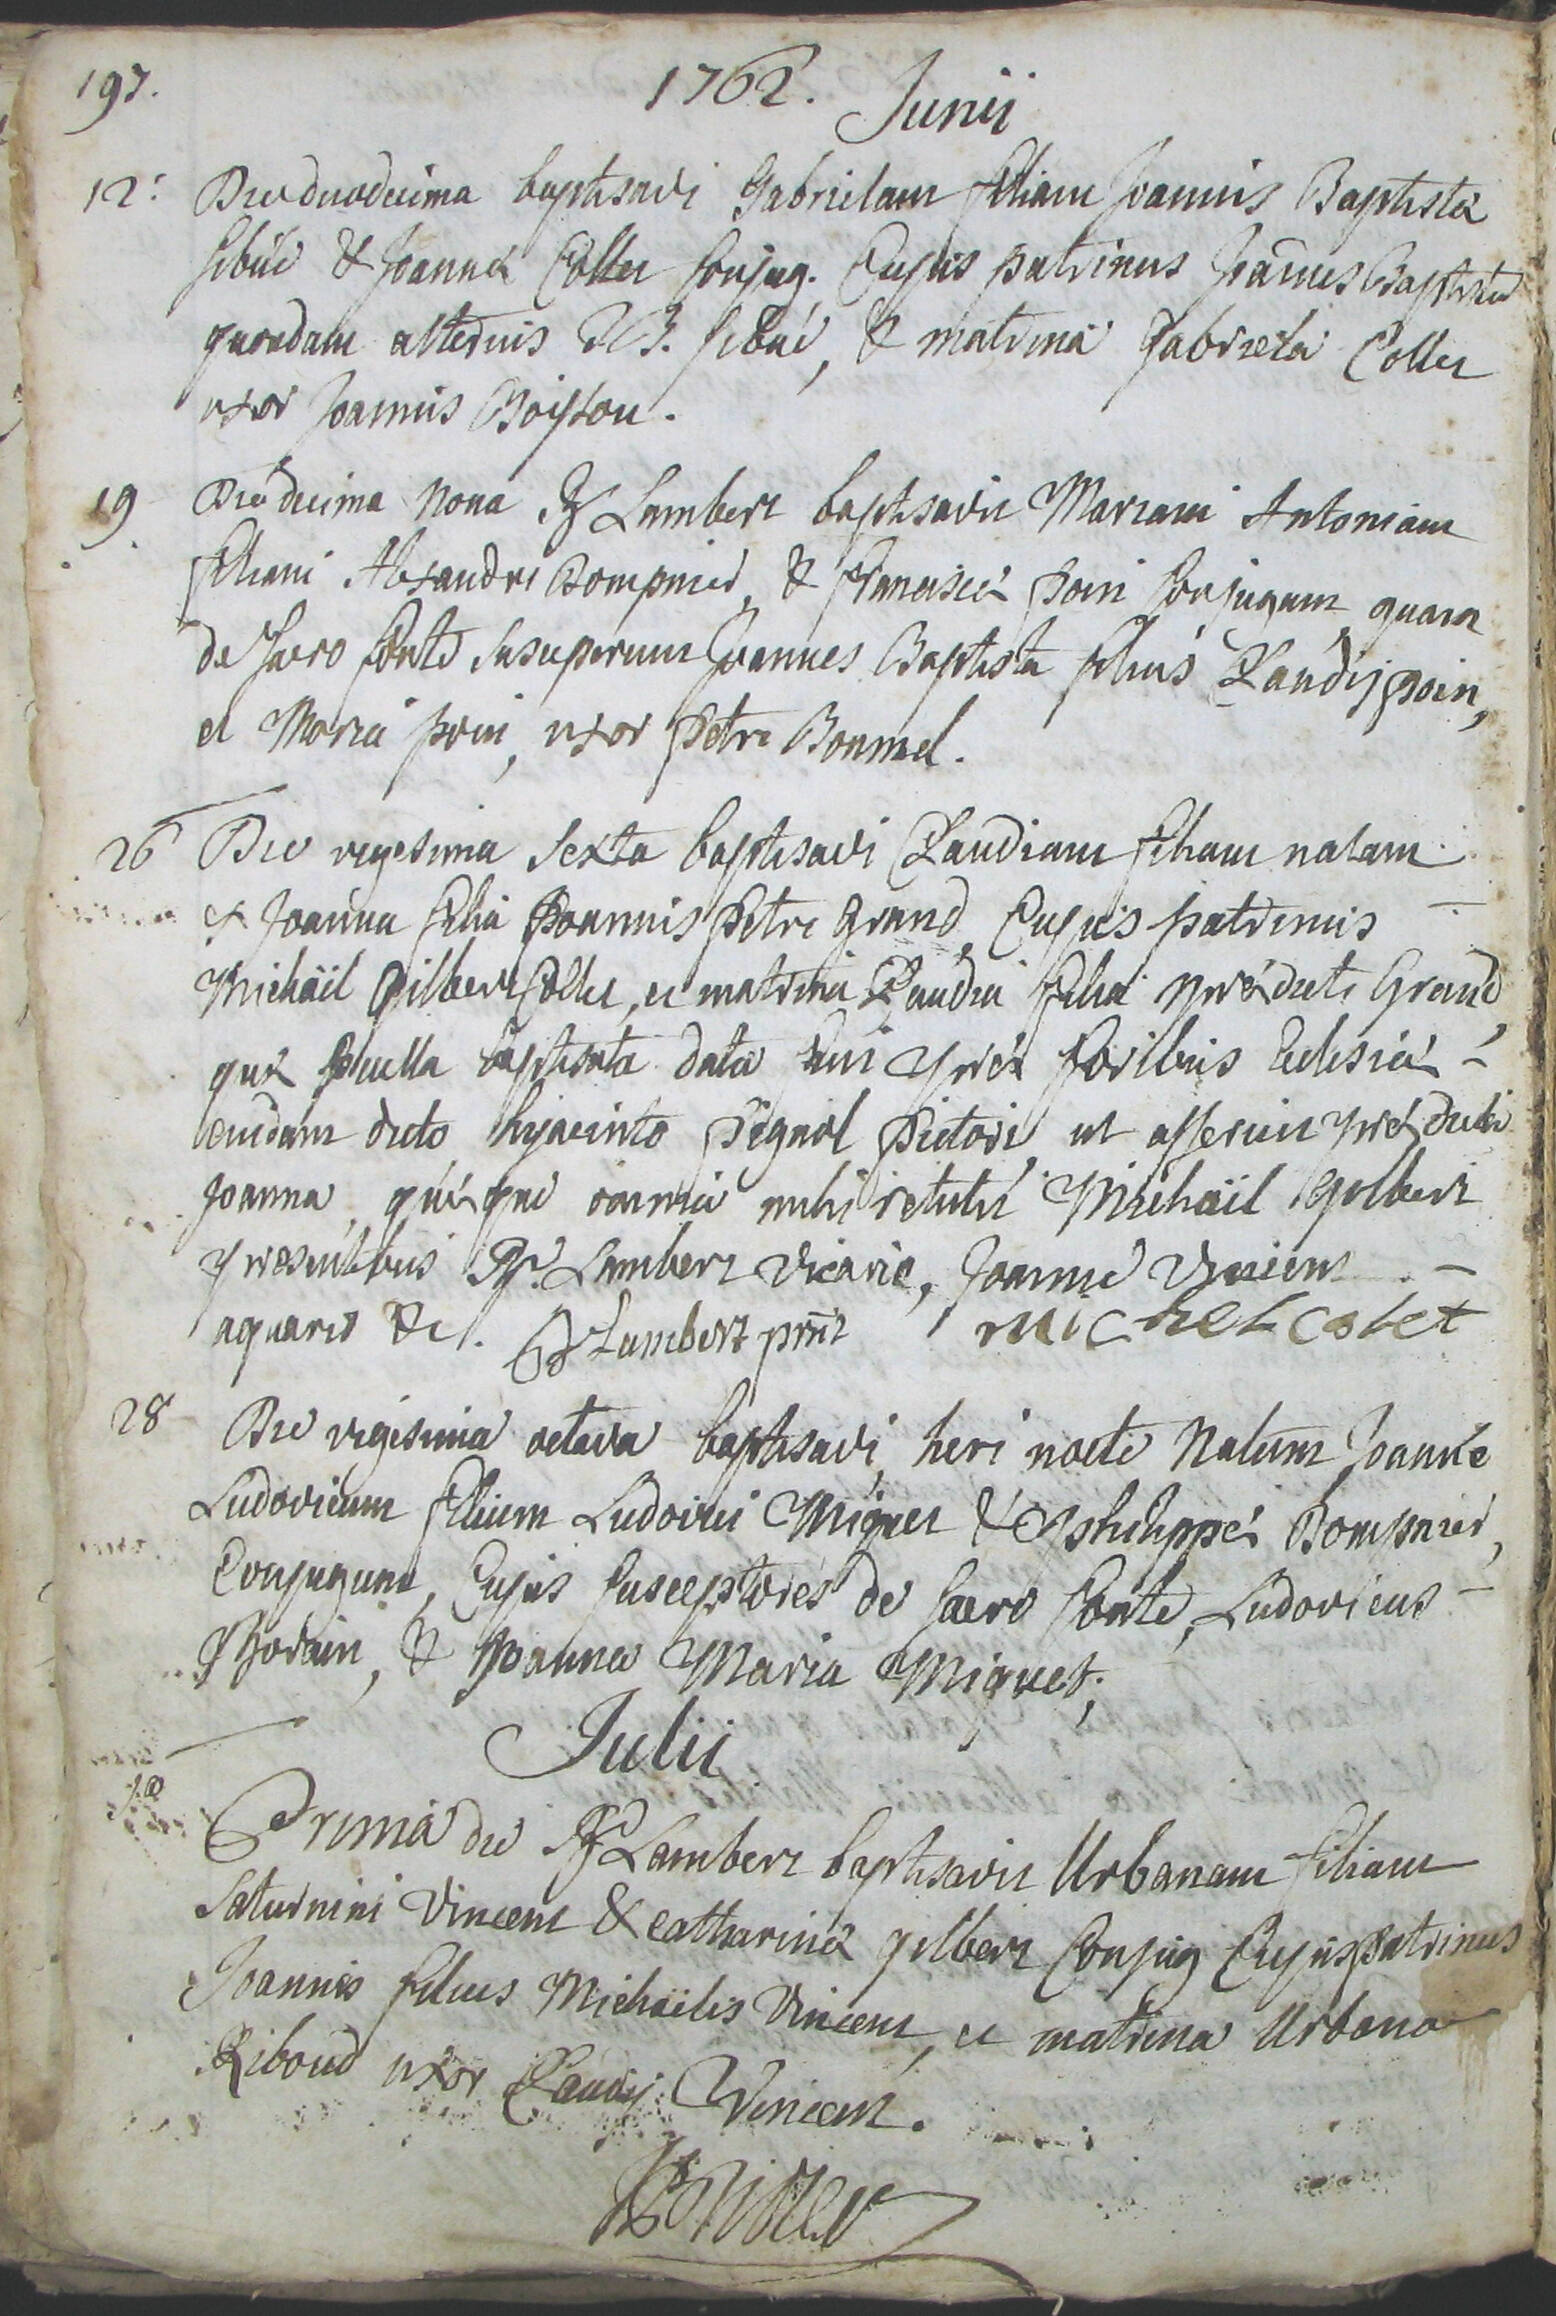 197.
1762.
Junii
12: Die duodecima baptisavi Gabrielam filiam Joannis Baptistæ
sibué & Joannæ Collet Conjug. Cujus patrinus Joannes Baptista
quondam alterius J.B. sibué, & matrina Gabriela Collet
uxor Joannis Boisson.
19 Die decima nona Rd Lambert baptisavit Mariam Antoniam
filiam Alexandri Dompnier, & Franciscæ poin Conjugum, quam
de sacro fonte susceperunt Joannes Baptista filius Claudij poin,
et Maria poin, uxor Petri Bonnel.
26 Die vigesima sexta baptisavi Claudiam filiam natam
ex Joanna filia Joannis Petri Grand, Cujus patrinus
Michaël Gilbert Collet, et matrina Claudia filia prædicti Grand,
quæ puella baptisata data fuit præ foribus Eclesiæ
cuidam dicto hyacinto pignol pictori, ut asseruit prædicta
Joanna, quæque omnia mihi retulit Michaël Gilbert
presentibus Rd. Lambert Vicario, Joanne Vincent
aquario &c. Rd Lambert pnt michel colet
28 Die vigesima octava baptisavi, heri nocte natum Joanne
Ludovicum filium Ludovici Miguet & philippæ Dompnier,
Conjugum, Cujus susceptores de sacro fonte, Ludovicus
Jorcin, & Joanna Maria Miguet;
Julii
1a
Prima die Rd Lambert baptisavit Urbanam filiam
Saturnini Vincent & catharinæ gilbert Conjug Cujus patrinus
Joannes filius Michaëlis Vincent, et matrina Urbana
Riboud uxor Claudij Vincent.